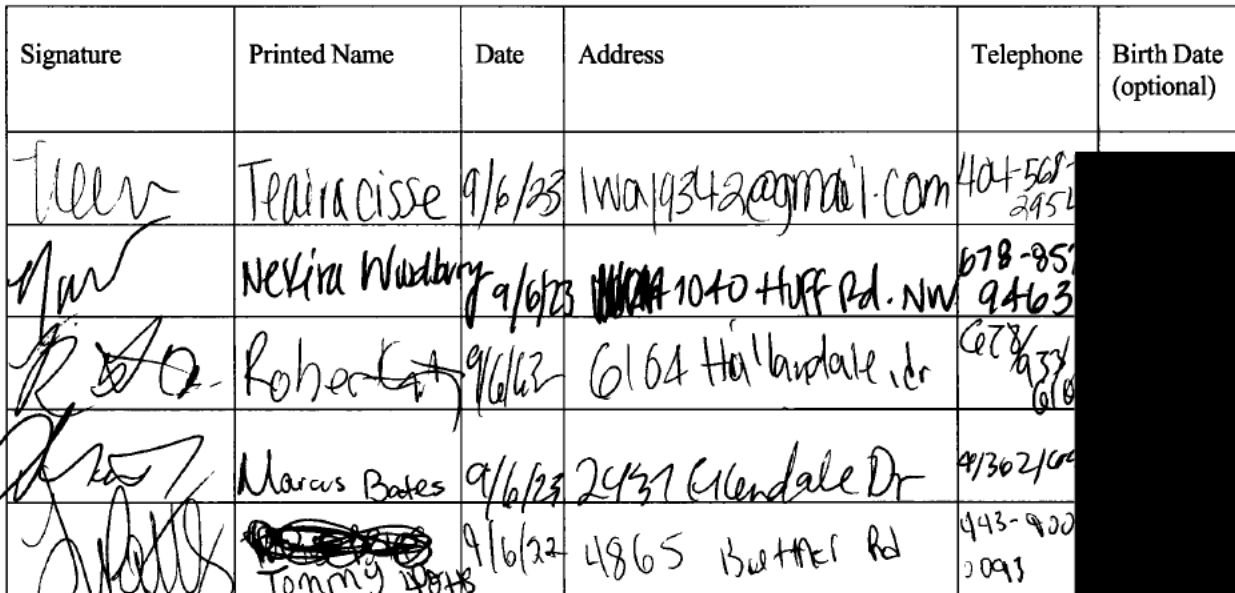 Signature Printed Name Date Address Telephone Birth Date
(optional)
Teairacisse 9/6/23 1wa19342@gmail.com 404-568-
295
Nekira Woodbury 9/6/23 1040 Huff Rd. NW 678-857
9463
Robert 9/6/ 6164 Hillandale dr 678/
933/
610
Marcus Bates 9/6/23 2437 Glendale Dr
Tommy 9/6/22 4865 Rd 443-900
0093